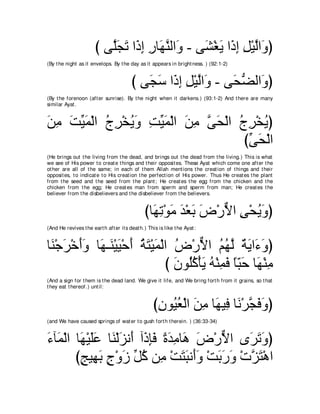 (وَالَّيْلِ إِذَا يَغْشَى - وَالنَّهَارِ إِذَا تَجَلَّى )
(By the night as it envelops. By the day as it appears in brightness. ) (92:1-2)
(وَالضُّحَى - وَالَّيْلِ إِذَا سَجَى )
(By the forenoon (after sunrise). By the night when it darkens.) (93:1-2) And there are many
similar Ayat.
(يُخْرِجُ الْحَىَّ مِنَ الْمَيِّتِ وَيُخْرِجُ الْمَيِّتَ مِنَ
الْحَىِّ)
(He brings out the living from the dead, and brings out the dead from the living.) This is what
we see of His power to create things and their opposites. These Ayat which come one after the
other are all of the same; in each of them Allah mentions the creation of things and their
opposites, to indicate to His creation the perfection of His power. Thus He creates the plant
from the seed and the seed from the plant; He creates the egg from the chicken and the
chicken from the egg; He creates man from sperm and sperm from man; He creates the
believer from the disbelievers and the disbeliever from the believers.
(وَيُحْىِ الاٌّرْضَ بَعْدَ مَوْتِهَا)
(And He revives the earth after its death.) This is like the Ayat:
(وَءَايَةٌ لَّهُمُ الاٌّرْضُ الْمَيْتَةُ أَحْيَيْنَـهَا وَأَخْرَجْنَا
مِنْهَا حَبّاً فَمِنْهُ يَأْكُلُونَ )
(And a sign for them is the dead land. We give it life, and We bring forth from it grains, so that
they eat thereof.) until:
(وَفَجَّرْنَا فِيهَا مِنَ الْعُيُونِ)
(and We have caused springs of water to gush forth therein. ) (36:33-34)
(وَتَرَى الاٌّرْضَ هَامِدَةً فَإِذَآ أَنزَلْنَا عَلَيْهَا الْمَآءَ
اهْتَزَّتْ وَرَبَتْ وَأَنبَتَتْ مِن كُلِّ زَوْجٍ بَهِيجٍ)